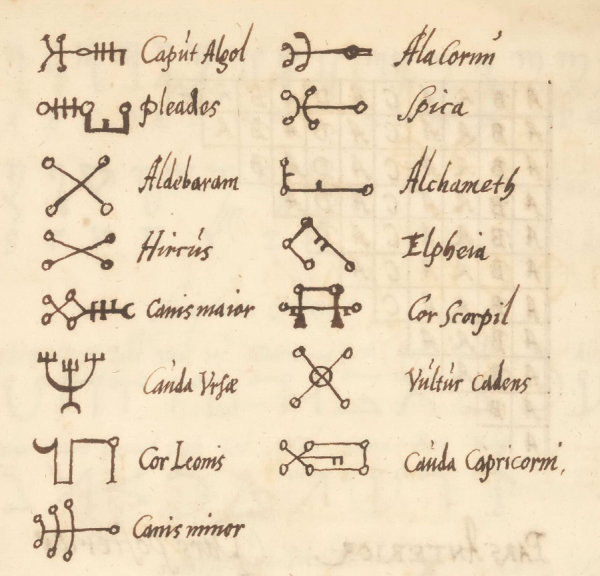 Capút Algol
pleades
Aldebaram
Hircús
Canis maior
Caúda Vrsæ
Cor Leonis
Canis minor
Ala Corúi
Spica
Alchameth
Elpheia
Cor Scorpii
Vúltúr cadens
Caúda Capricorni.